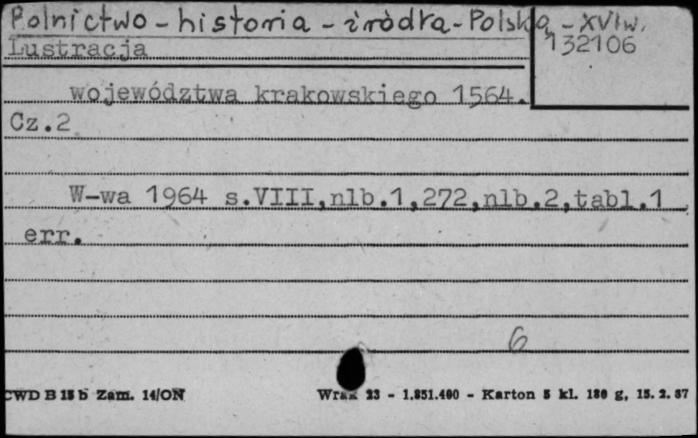 Rolnictwo - historia - źródła - Polska - XVI w.
132106
Lustracja
województwa krakowskiego 1564.
Cz.2
W-wa 1964 s.VIII,nlb.1,272,nlb.2,tabl.1
err.
6
CWD B 15 b Zam. 14/ON
23 - 1.851.400 - Karton 5 kl. 180 g, 15. 2. 67